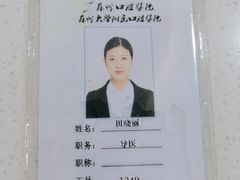 苏州口腔医院
苏州大学附属口腔医院
姓名：田晓丽
职务：导医
职称：
工号 1249